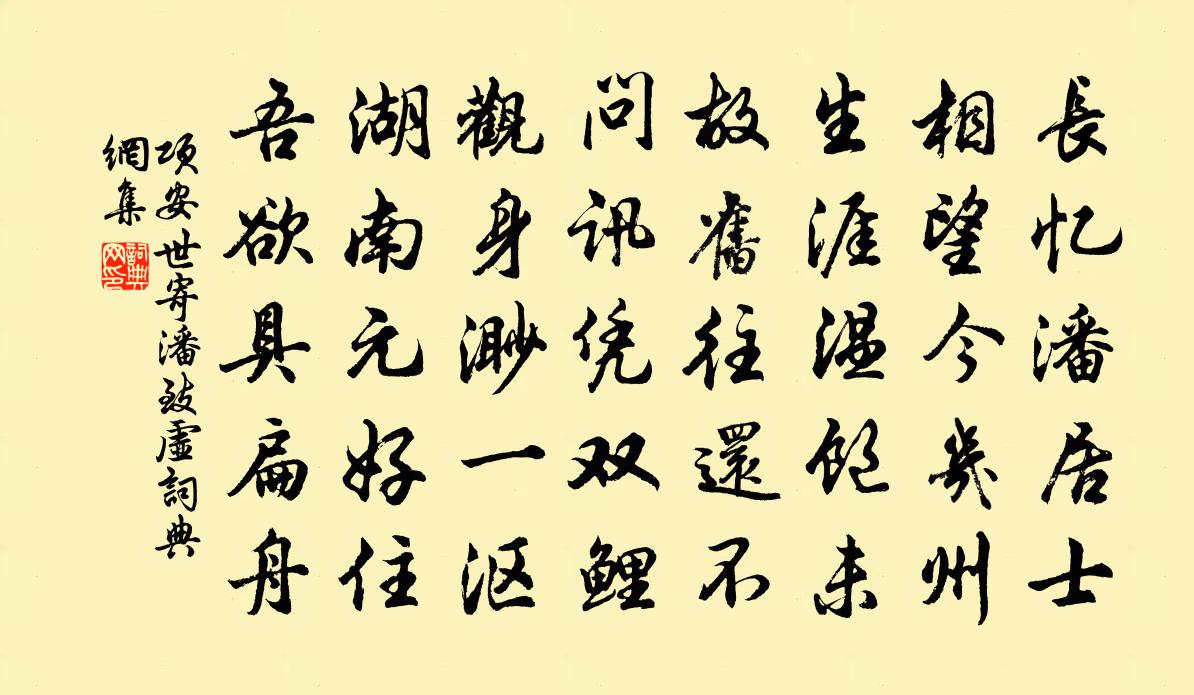 長忆潘居士
相望今幾州
生涯温飽未
故舊往還不
問訊凭双鲤
觀身渺一沤
湖南元好住
吾欲具扁舟
项安世寄潘致虛詞典
網集
詞典
网印